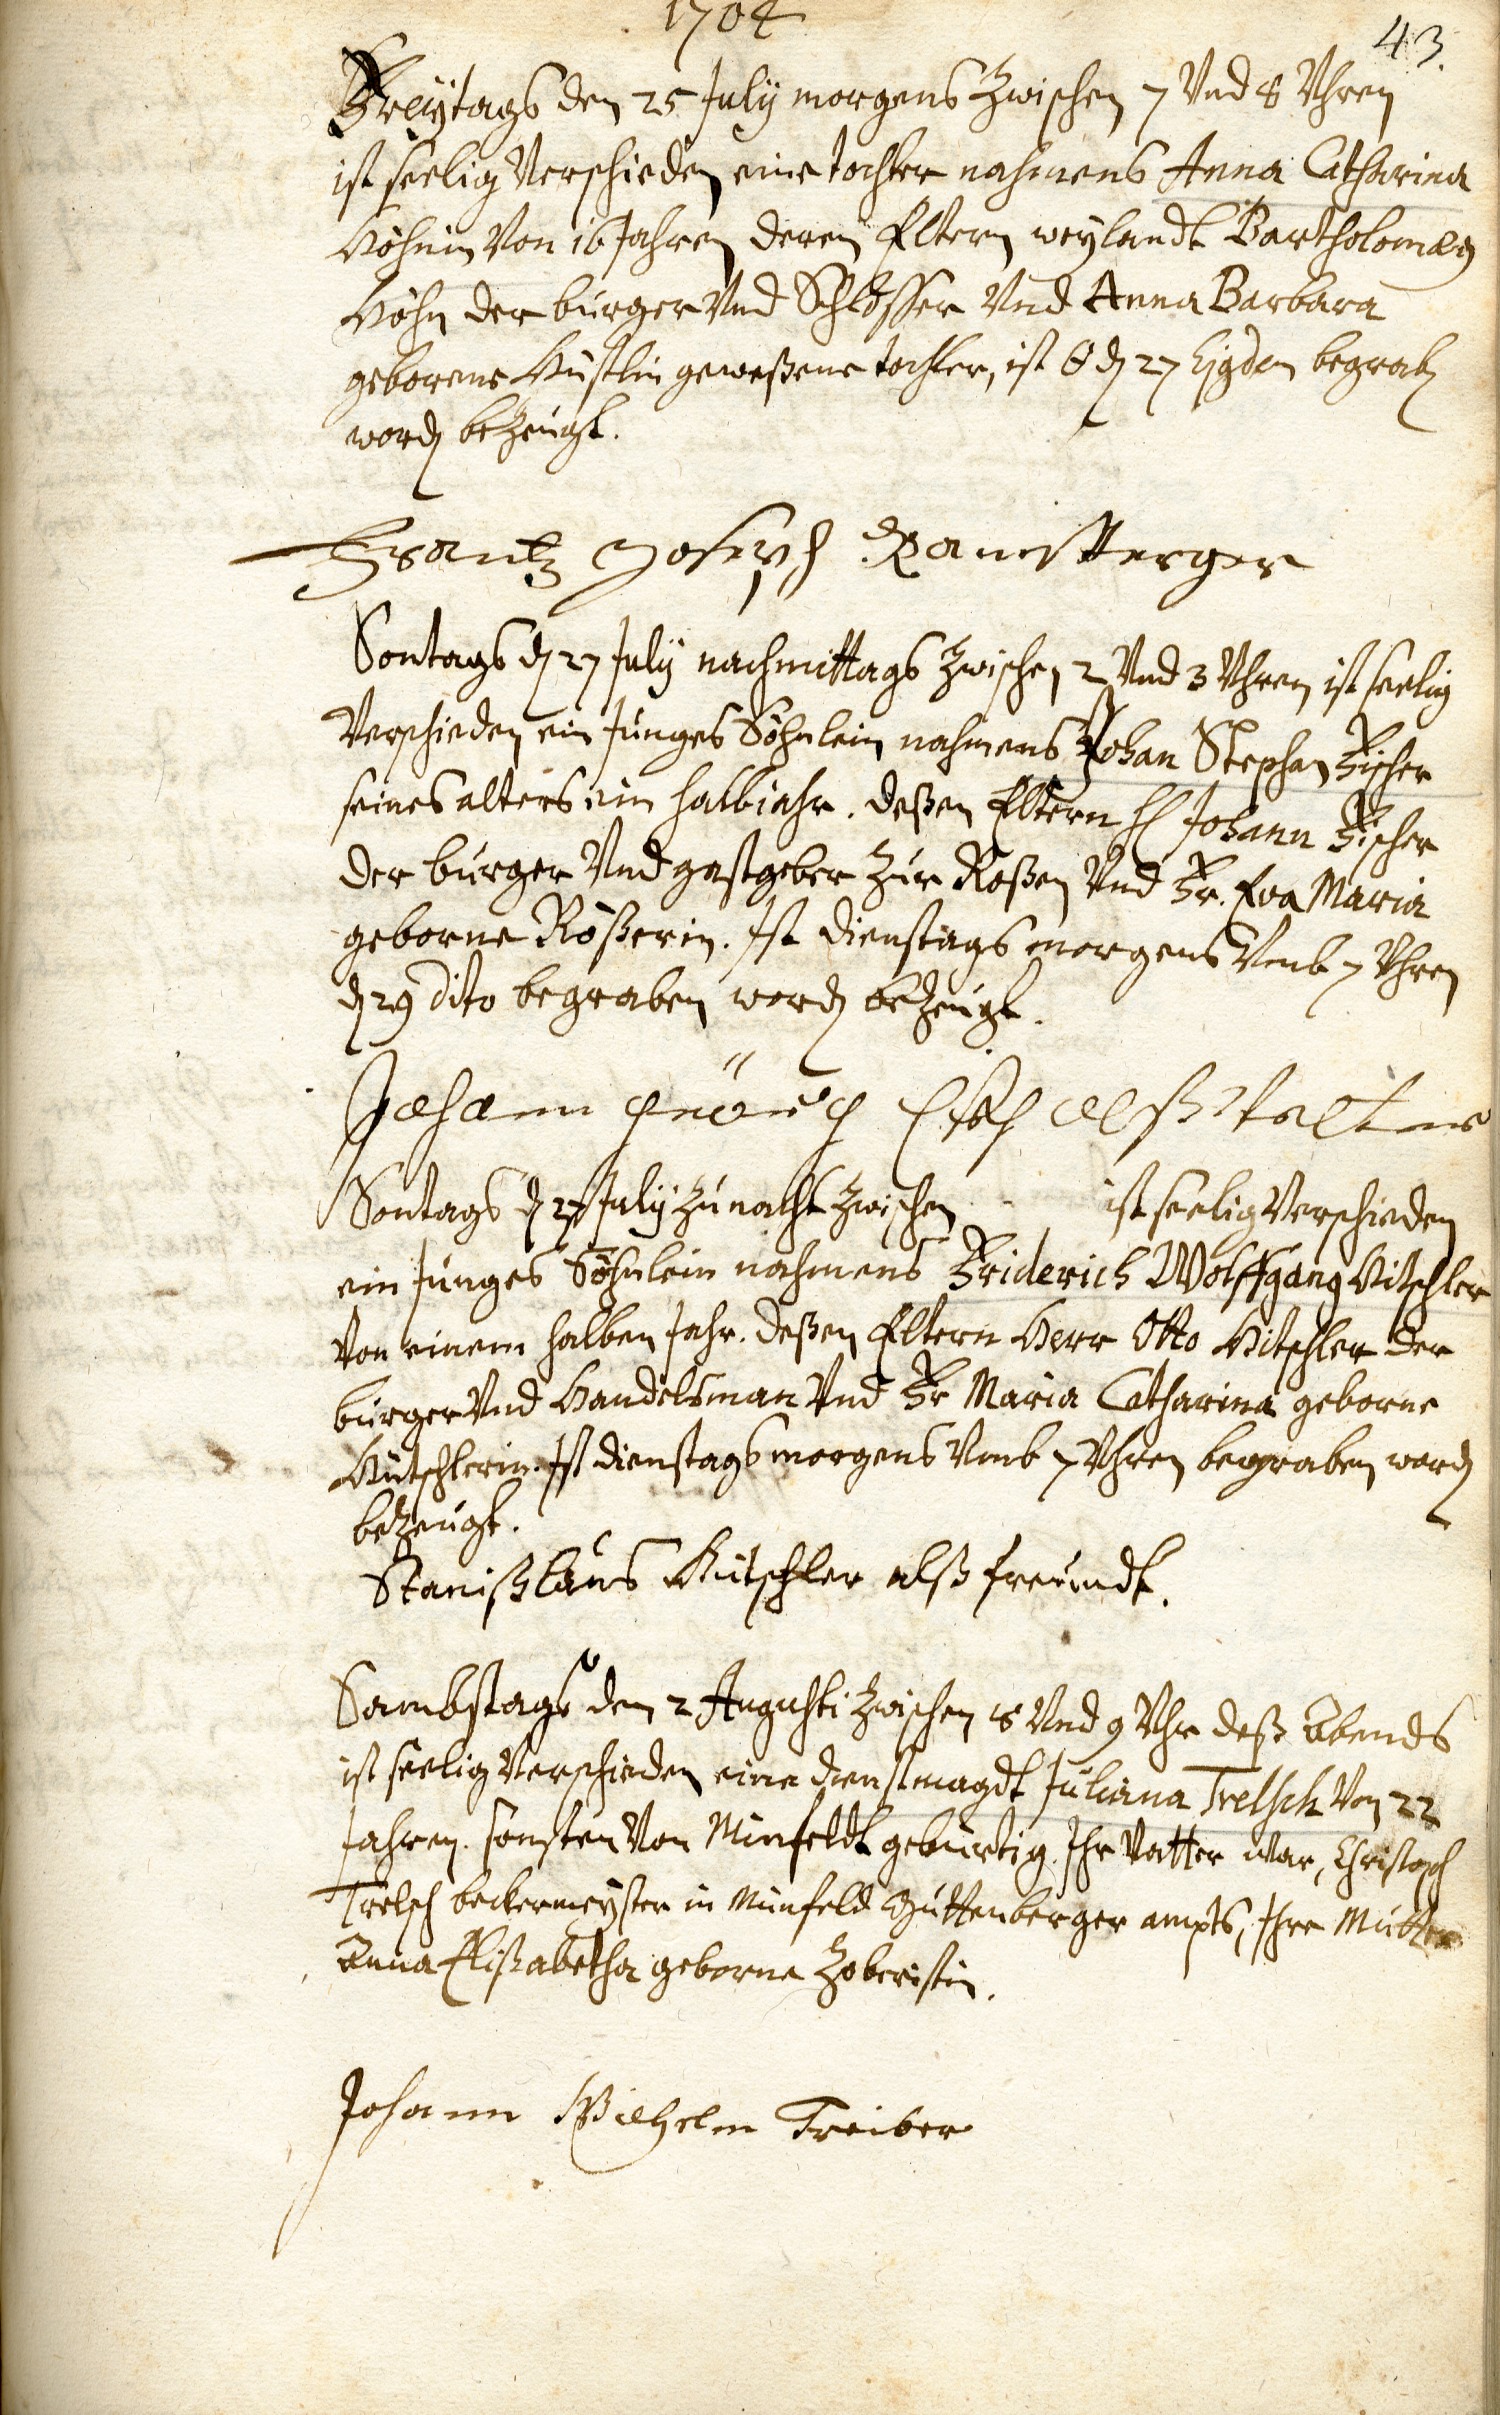 1704
43.
Freytags den 25 July morgens Zwischen 7 Vnd 8 Vhren
ist seelig Verschieden eine tochter nahmens Anna Catharina
Höhnin Von 16 Jahren deren Eltern weylandt Bartholomæ
Höhn der burger Vnd Schlosser Vnd Anna Barbara
geborene geweßene tochter, ist d 27 begrab
word bezeugt.
Frantz Joseph
Sontags d 27 July nachmittags Zwischen 2 Vnd 3 Vhren ist seelig
Verschieden ein Junges Söhnlein nahmens Johan Stephan Fischer
seines alters ein halb jahr. deßen Eltern H Johann Fischer
der burger Vnd gastgeber Zur Roßen Vnd Fr. Eva Maria
geborne Rößerin. Ist dienstags morgens Vmb 7 Vhren
d 29 dito begraben word bezeugt.
Johann
Sontags d 27 July Zu nacht Zwischen ist seelig Verschieden
ein Junges Söhnlein nahmens Friderich Wolffgang Hitschler
Von einem halben Jahr. deßen Eltern Herr Otto Hitschler der
burger Vnd Handelsman Vnd Fr Maria Catharina geborne
Hütschlerin. Ist dienstags morgens Vmb 7 Vhren begraben word
bezeugt.
Stanißlaus Hütschler alß freundt.
Sambstags den 2 Augusti Zwischen 8 Vnd 9 Vhr deß Abends
ist seelig Verschieden eine dienstmagdt Juliana Trelsch Von 22
Jahren. sonsten Von Minfeldt gebürtig. Ihr Vatter war, Christoph
Trölsch beckermeyster in Minfeld Guttenberger ampts, Ihre Mutter
Anna Elißabetha geborne Zoberistin.
Johann Wilhelm Treiber